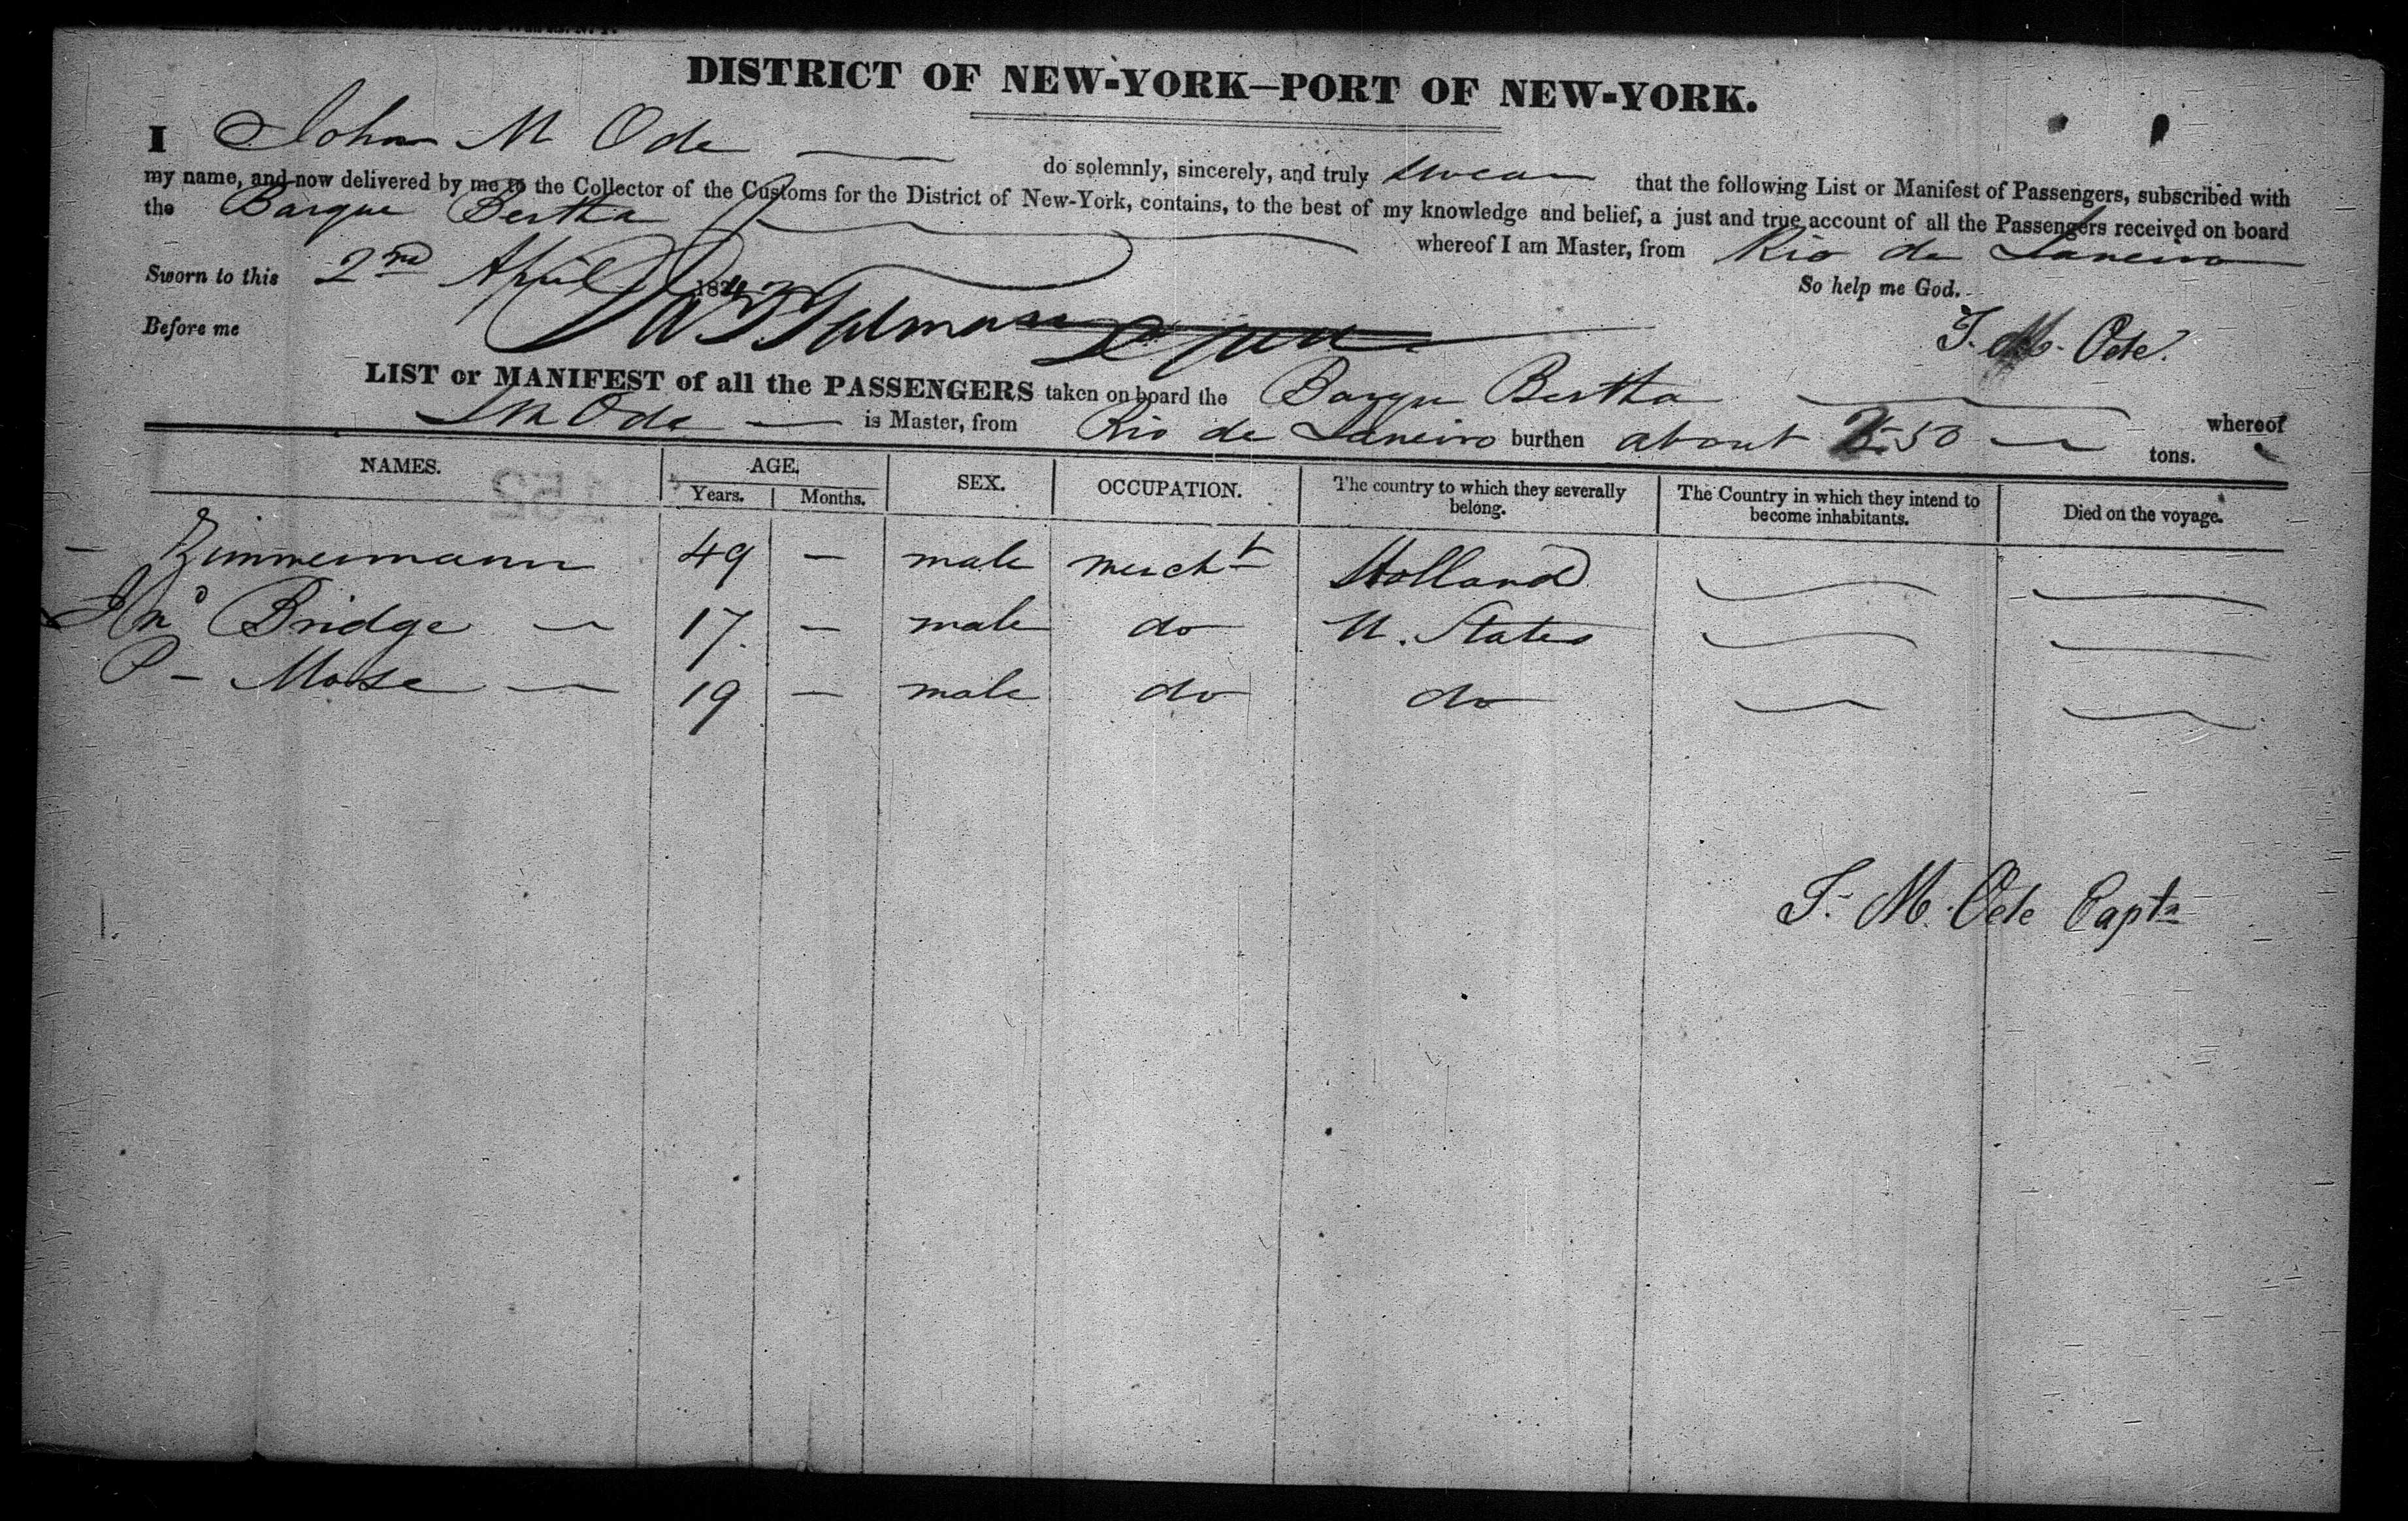 DISTRICT OF NEW-YORK—PORT OF NEW-YORK.
I John M Ode do solemnly, sincerely, and truly swear that the following List or Manifest of Passengers, subscribed with
my name, and now delivered by me to the Collector of the Customs for the District of New-York, contains, to the best of my knowledge and belief, a just and true account of all the Passengers received on board
the Barque Bertha whereof I am Master, from Rio de Janeiro
Sworn to this 2nd April So help me God.
Before me J. M. Ode.
LIST or MANIFEST of all the PASSENGERS taken on board the Barque Bertha whereof
J M Ode is Master, from Rio de Janeiro burthen about 50 tons.
NAMES. AGE, SEX. OCCUPATION. The country to which they severally belong. The Country in which they intend to become inhabitants. Died on the voyage.
Years. Months.
— Zimmermann 49 — male mercht Holland
Jno Bridge — 17. — male do U. States
P — Mose — 19 — male do do
J. M. Ode Capt